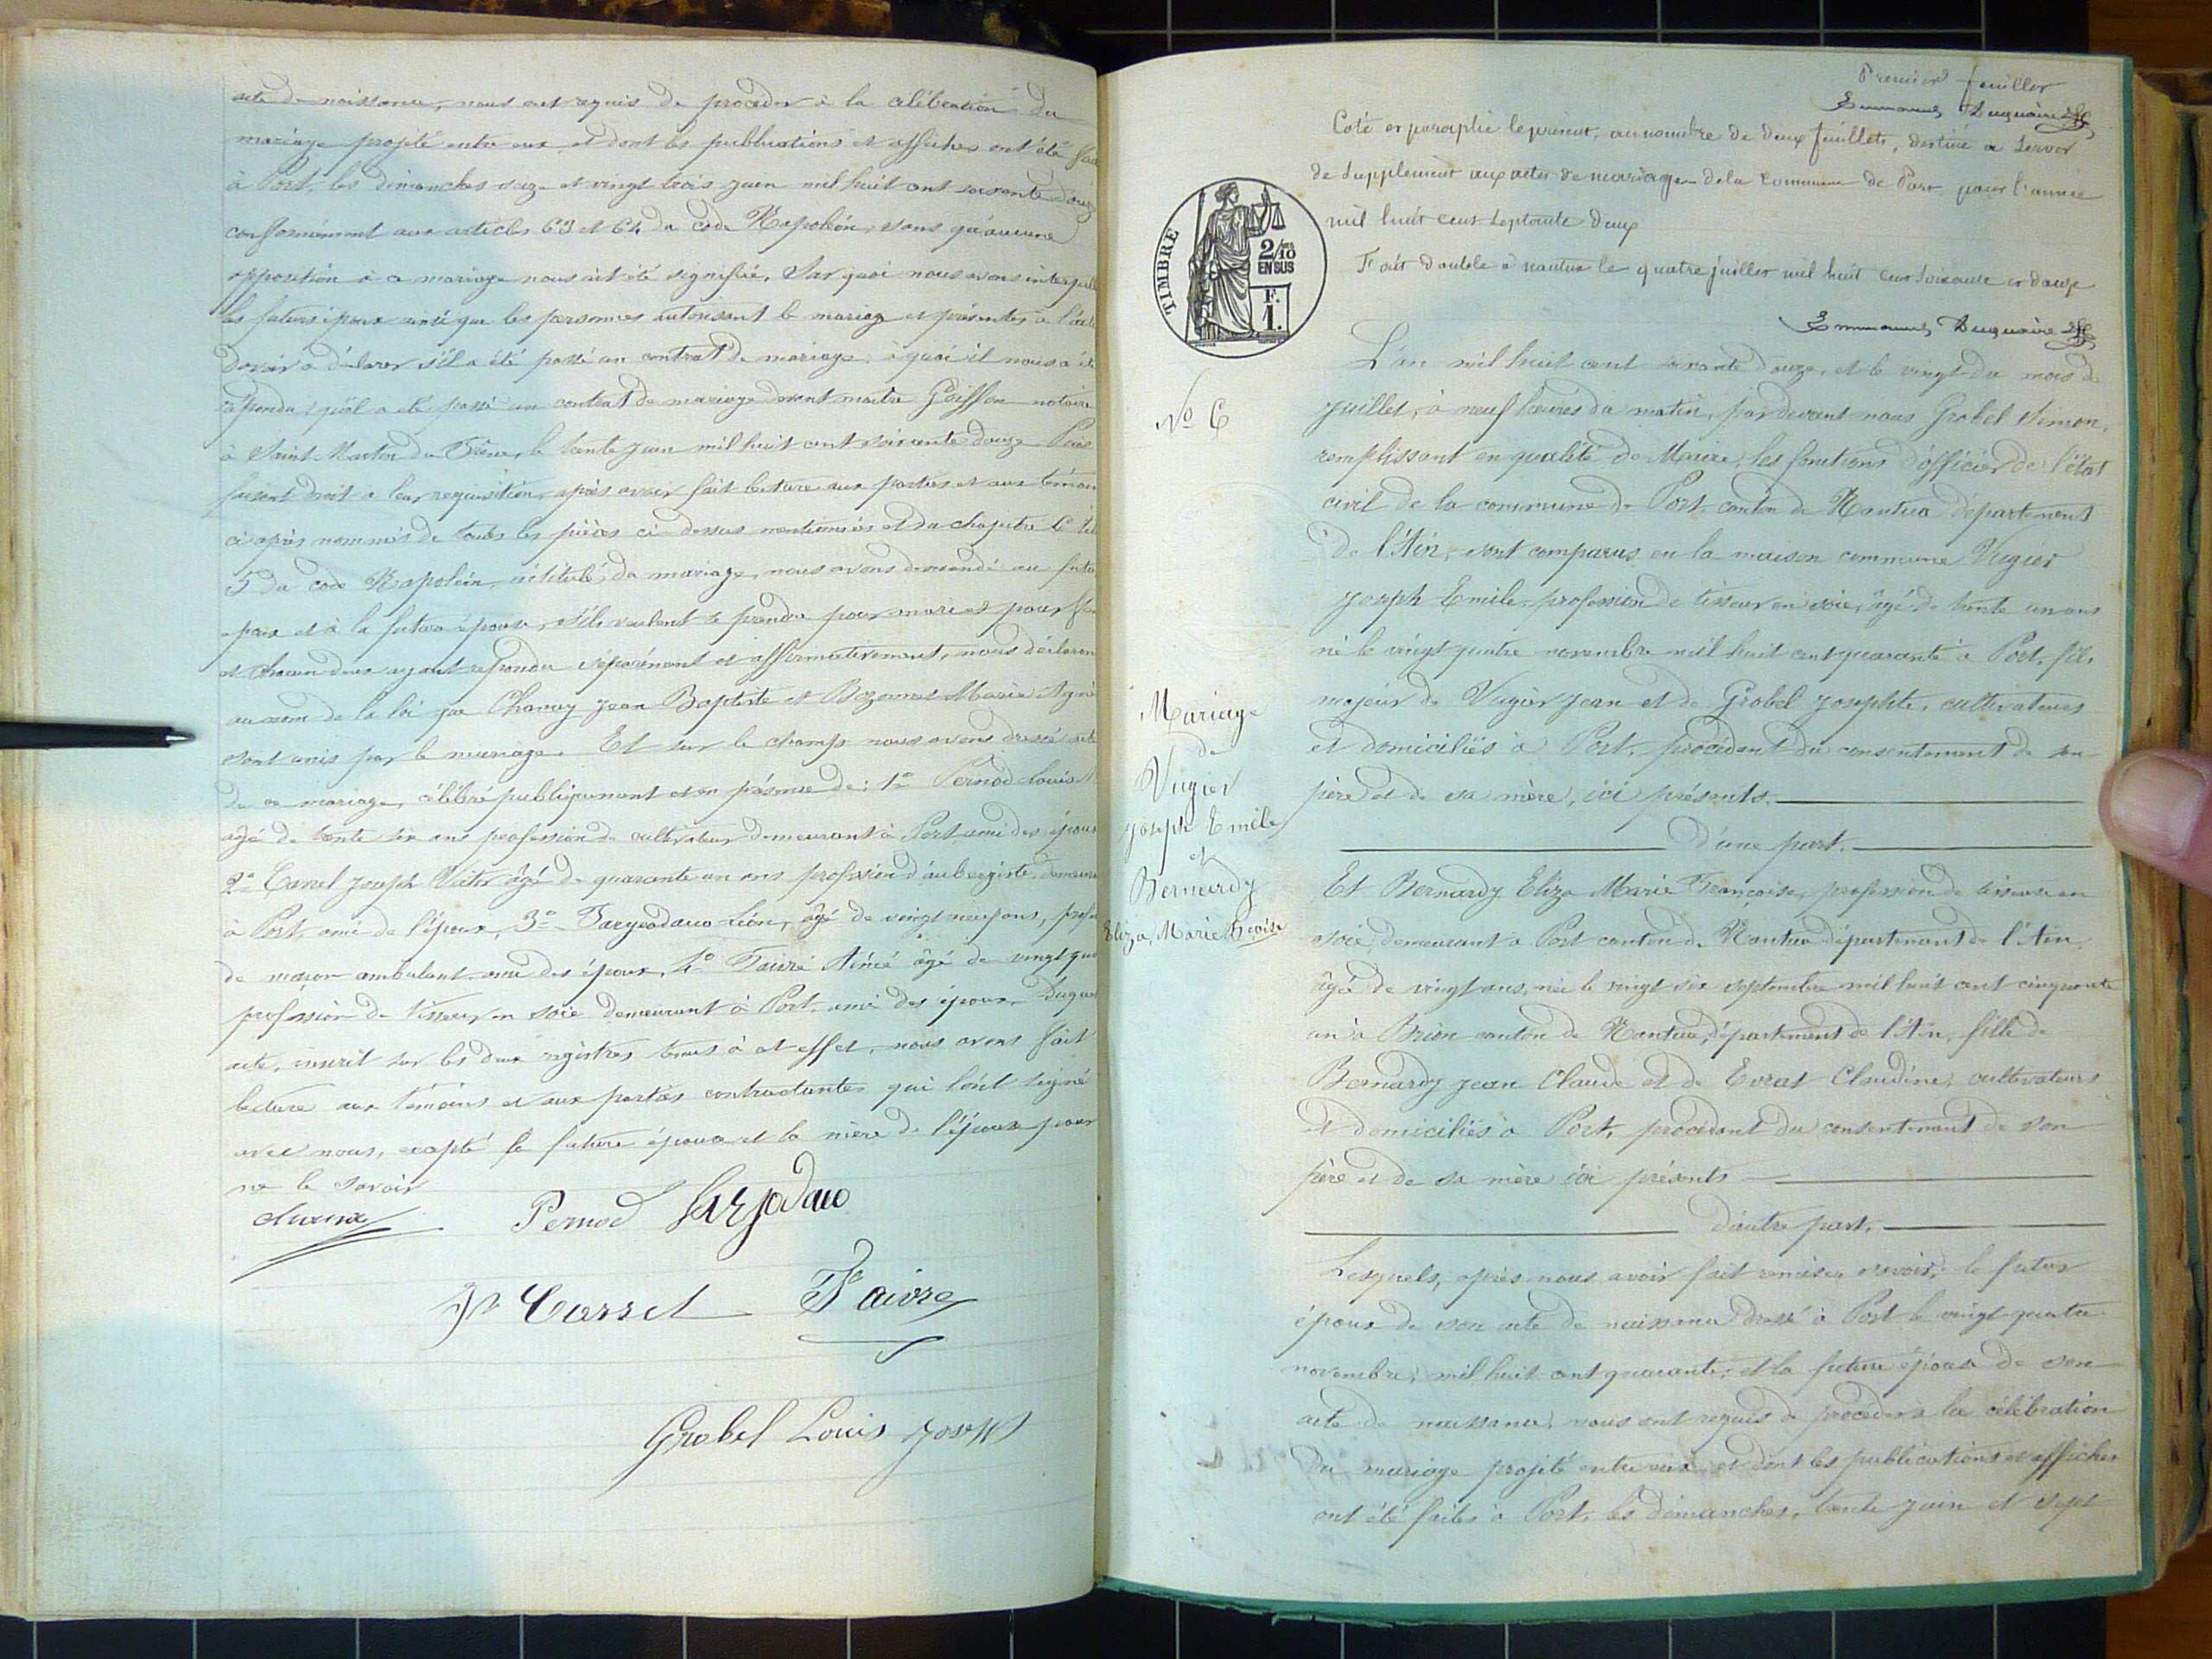 acte de naissance, nous ont requis de procéder à la célébration du
mariage projeté entre eux et dont les publications et affiches ont été
à Port, les dimanches seize et vingt trois juin mil huit cent soixante douze
conformément aux articles 63 et 64 du code Napoléon, sans qu'aucune
opposition à ce mariage nous ait été signifiée. Sur quoi nous avons
les futurs époux ainsi que les personnes autorisant le mariage et présentes à
à déclarer s'il a été passé un contrat de mariage; à quoi il nous a été
répondu: qu'il a été passé un contrat de mariage devant maitre Goiffon notaire
à Saint Martin du Frêne, le trente juin mil huit cent soixante douze
faisant droit à leur requisition, après avoir fait lecture aux parties et aux
ci-après nommés de toutes les pièces ci-dessus mentionnées et du chapitre 6
5 du code Napoléon, intitulé du mariage, nous avons demandé au
époux et à la future épouse, s'ils veulent se prendre pour mari et pour
et chacun d'eux ayant répondu séparément et affirmativement, nous déclarons
au nom de la loi que Jean Baptiste et Marie
sont unis par le mariage. Et sur le champ nous avons dressé acte
de ce mariage, célébré publiquement et en présence de: 1º Pernod Louis
âgé de trente six ans profession de cultivateur demeurant à Port ami des époux
2º Carrel Joseph Victor âgé de quarante un ans profession d'aubergiste
à Port, ami de l'époux, 3º Léon, âgé de vingt neuf ans,
de maçon ambulant ami des époux, 4º Faivre Aimé âgé de
profession de tisseur en soie demeurant à Port ami des époux
acte, inscrit sur les deux registres tenus à cet effet, nous avons fait
lecture aux témoins et aux parties contractantes qui l'ont signé
avec nous, excepté la future épouse et la mère de l'époux pour
ne le savoir
Pernod
Carrel Faivre
Grobel Louis Joseph
Premier feuillet
Emmanuel Duquaire
Coté et paraphé le présent, au nombre de deux feuillets, destiné à servir
de supplément aux actes de mariage de la commune de Port pour l'année
mil huit cent septante deux
Fait double à nantua le quatre juillet mil huit cent soixante et douze
Emmanuel Duquaire
TIMBRE
2/10
EN SUS
F.
1.
Nº 6
L'an mil huit cent soixante douze, et le vingt du mois de
juillet, à neuf heures du matin, par devant nous Grobel Simon,
remplissant en qualité de Maire, les fonctions d'officier de l'état
civil de la commune de Port, canton de Nantua département
de l'Ain, sont comparus en la maison commune Vugier
Joseph Emile, profession de tisseur en soie, âgé de trente un ans
né le vingt quatre novembre mil huit cent quarante à Port, fils
majeur de Vugier Jean et de Grobel Josephte, cultivateurs
et domiciliés à Port, procédant du consentement de son
père et de sa mère, ici présents.
d'une part.
Mariage
de
Vugier
Joseph Emile
et
Bernardy
Eliza, Marie Fçoise
Et Bernardy Eliza Marie Françoise, profession de tisseuse en
soie, demeurant à Port canton de Nantua département de l'Ain,
âgée de vingt ans, née le vingt six septembre mil huit cent cinquante
un à Brion canton de Nantua, département de l'Ain, fille de
Bernardy Jean Claude et de Evrat Claudine, cultivateurs
et domiciliés à Port, procédant du consentement de son
père et de sa mère ici présents
d'autre part.
Lesquels, après nous avoir fait remise, savoir, le futur
époux de son acte de naissance dressé à Port le vingt quatre
novembre, mil huit cent quarante, et la future épouse de son
acte de naissance, nous ont requis de procéder à la célébration
du mariage projeté entre eux et dont les publications et affiches
ont été faites à Port, les dimanches, trente juin et sept